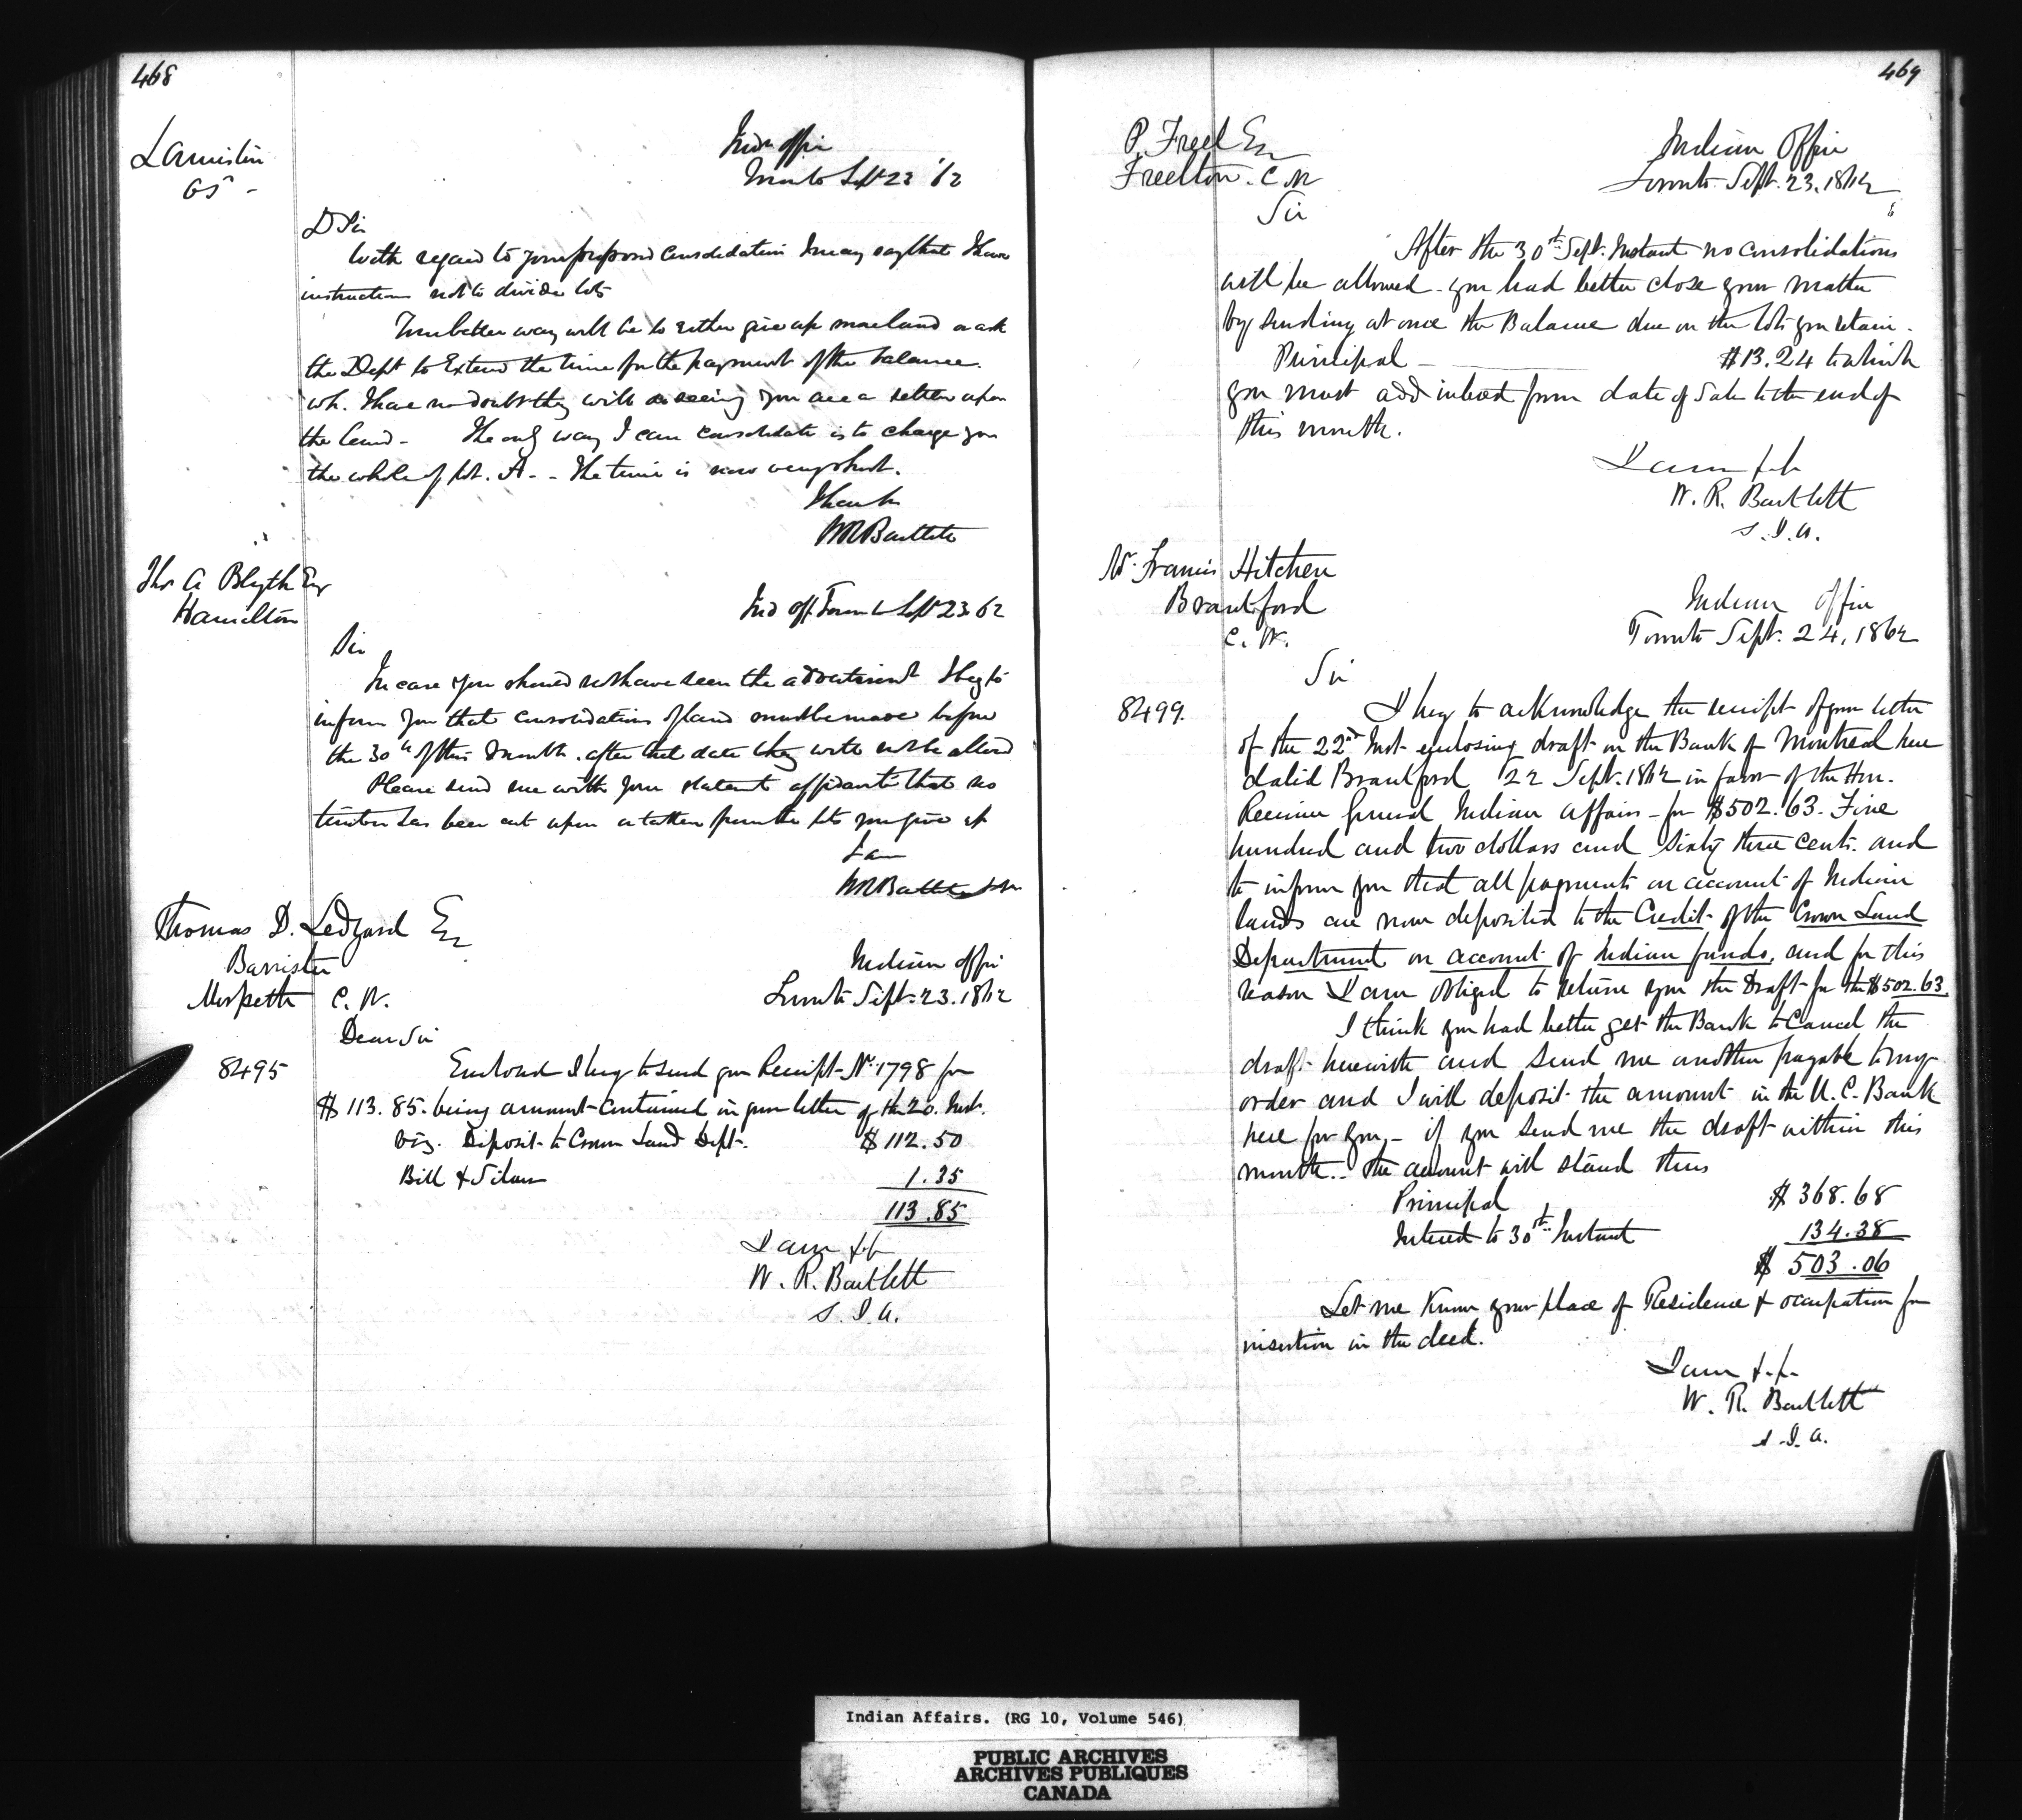 468
Ind offi
Toronto Sept 23 '62
D Sir
With regard to your proposed consolidation I may say that I have
instructions not to divide lots
Your better way will be to either give up more land or ask
the Dept to Extend the time for the payment of the balance.
wh. I have no doubt they will seeing you are a settler upon
the land - The only way I can consolidate is to charge you
the whole of lot. A. - The time is now very short.
WRBartlett
Thos A Blyth Esq
Hamilton
Ind off. Toronto Sept 23 62
Sir
In case you should not have seen the advertisement I beg to
inform you that consolidations of land must be made before
the 30th of this month. after that date they will not be allowed
Please send me with your statement affidavits that no
timber has been cut upon or taken from the lots you give up
I am
WRBartlett
Thomas D. Ledyard Esq
Barrister
Morpeth C. W.
Indian Offi
Toronto Sept. 23. 1862
Dear Sir
8495
Enclosed I beg to send you Receipt No. 1798 for
$113.85. being amount contained in your letter of the 20. Inst.
viz. Deposit to Crown Land Dept. $112.50
Bill & Silver 1.35
113.85
I am &c
W. R. Bartlett
S. I. A.
469
P. Freel Esq
Freelton. C. W
Indian Offi
Toronto Sept. 23. 1862
Sir
After the 30th Sept. Instant no consolidations
will be allowed - you had better close your matter
by sending at once the Balance due on the lots you retain.
Principal - $13.24 to which
you must add interest from date of Sale to the end of
this month.
I am &c
W. R. Bartlett
S. I. A.
Mr. Francis Hitchen
Brantford
C. W.
Indian Offi
Toronto Sept. 24, 1862
Sir
8499.
I beg to acknowledge the receipt of your letter
of the 22nd Inst. enclosing draft on the Bank of Montreal here
dated Brantford 22 Sept. 1862 in favor of the Hon.
Receiver General Indian Affairs - for $502.63. Five
hundred and two dollars and sixty three cents. and
to inform you that all payments on account of Indian
lands are now deposited to the Credit of the Crown Land
Department on account of Indian funds, and for this
reason I am obliged to return you the Draft for the $502.63.
I think you had better get the Bank to Cancel the
draft herewith and send me another payable to my
order and I will deposit the amount in the U. C. Bank
here for you, - if you send me the draft within this
month. - the amount will stand thus
Principal $368.68
Interest to 30th Instant 134.38
$503.06
Let me know your place of Residence & occupation for
insertion in the deed.
I am &c
W. R. Bartlett
S. I. A.
Indian Affairs. (RG 10, Volume 546)
PUBLIC ARCHIVES
ARCHIVES PUBLIQUES
CANADA